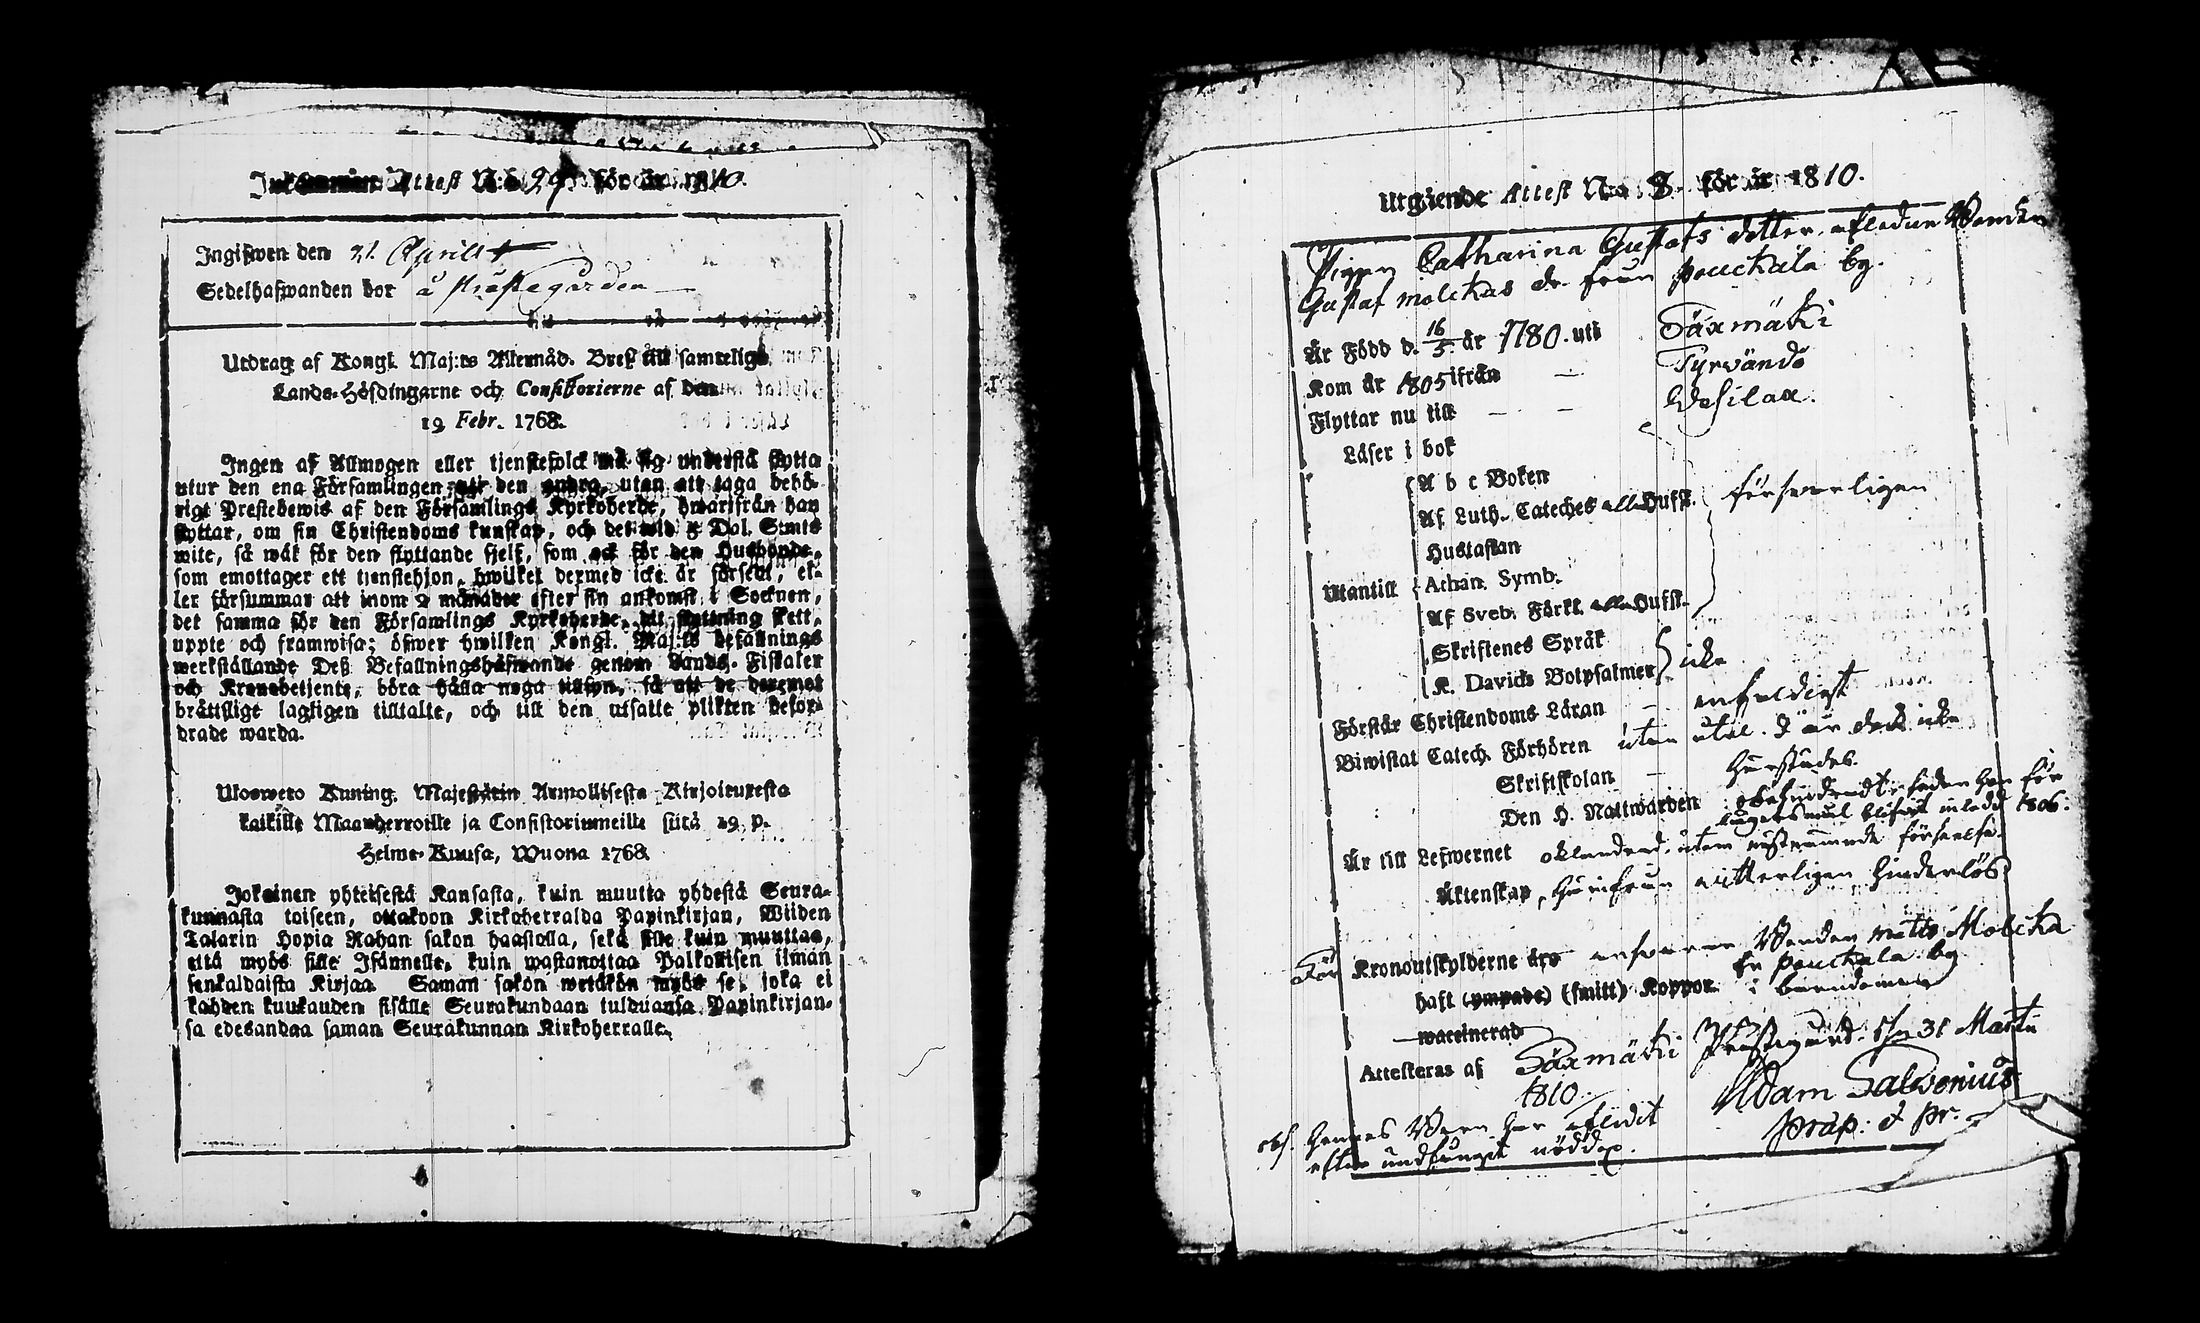 Inkommen Attest N:o 29 för år 1810.
Ingifwen den 21 Aprill
Sedelhafwanden bor å Prästegården
Utdrag af Kongl. Maj:ts Allernåd. Bref till samtelige
Lands-Höfdingarne och Consistorierne af den
19 Febr. 1768.
Ingen af Allmogen eller tjenstefolck må sig understå flytta
utur den ena Församlingen til den andra, utan att taga behö-
rigt Prestebewis af den Församlings Kyrkoherde, hwarifrån han
flyttar, om sin Christendoms kunskap, och det wid 5 Dal. S:mts
wite, så wäl för den flyttande sjelf, som ock för den Husbonde,
som emottager ett tjenstehjon, hwilket dermed icke är försedt, el-
ler försummar att inom 2 månader efter sin ankomst i Socknen,
det samma för den Församlings Kyrkoherde, dit flyttning skett,
uppte och framwisa; öfwer hwilken Kongl. Maj:ts befallnings
werkställande Deß Befallningshafwande genom Lands-Fiskaler
och Kronobetjente, böra hålla noga tillsyn, så att de deremot
brättslige lagligen tilltalte, och till den utsatte plikten befor-
drade warda.
Uloswето Kuning. Majestätin Armollisesta Kirjoituxesta
kaikille Maanherroille ja Consistoriumeille siitä 19 p.
Helme-Kuusa, Wuona 1768.
Jokainen yhteisestä Kansasta, kuin muutta yhdestä Seura-
kunnasta toiseen, ottakoon Kirkoherralda Papinkirjan, Wiiden
Talarin Hopia Rahan sakon haastolla, sekä sille kuin muuttaa,
että myös sille Isännelle, kuin wastanottaa Palkollisen ilman
senkaldaista Kirjaa. Saman sakon wetäkön myös se, joka ei
kahden kuukauden sisälle Seurakundaan tulduansa Papinkirjan-
sa edesandaa saman Seurakunnan Kirkoherralle.
Utgående Attest N:o 8 för år 1810.
Pigan Catharina Gustafs dotter, afledne Bonden
Gustaf Molckas dr. från Pouckala by.
Är Född d. 16/5 år 1780. uti Säxmäki
Kom år 1805 ifrån — Tyrvändö
Flyttar nu till — — Wesilax.
Läser i bok
A b c Boken
Af Luth. Cateches alla Hufst. försvarligen
Hustaflan
Utantill Athan. Symb.
Af Sveb. Förkl. alla Hufst.
Skriftenes Språk
K. Davids Botpsalmer icke
Förstår Christendoms Läran — enfaldigt
Biwistat Catech. Förhören utan utel. i år dock icke
Skriftskolan — härstädes.
Den H. Nattwarden
1806.
Är till Lefwernet oklanderad, utom
Äktenskap, härifrån witterligen hinderlös
För Kronoutskylderne ansvarar Bonden Matts Molcka
fr. Pouckala by
haft (ympade) (smitt) Koppor i barndomen
waccinerad
Attesteras af Säxmäki Prestegård den 31 Martii
1810.
Adam Salvenius
præp. & Pr.
obs. Hennes Barn har aflidit
efter undfånget nöddop.